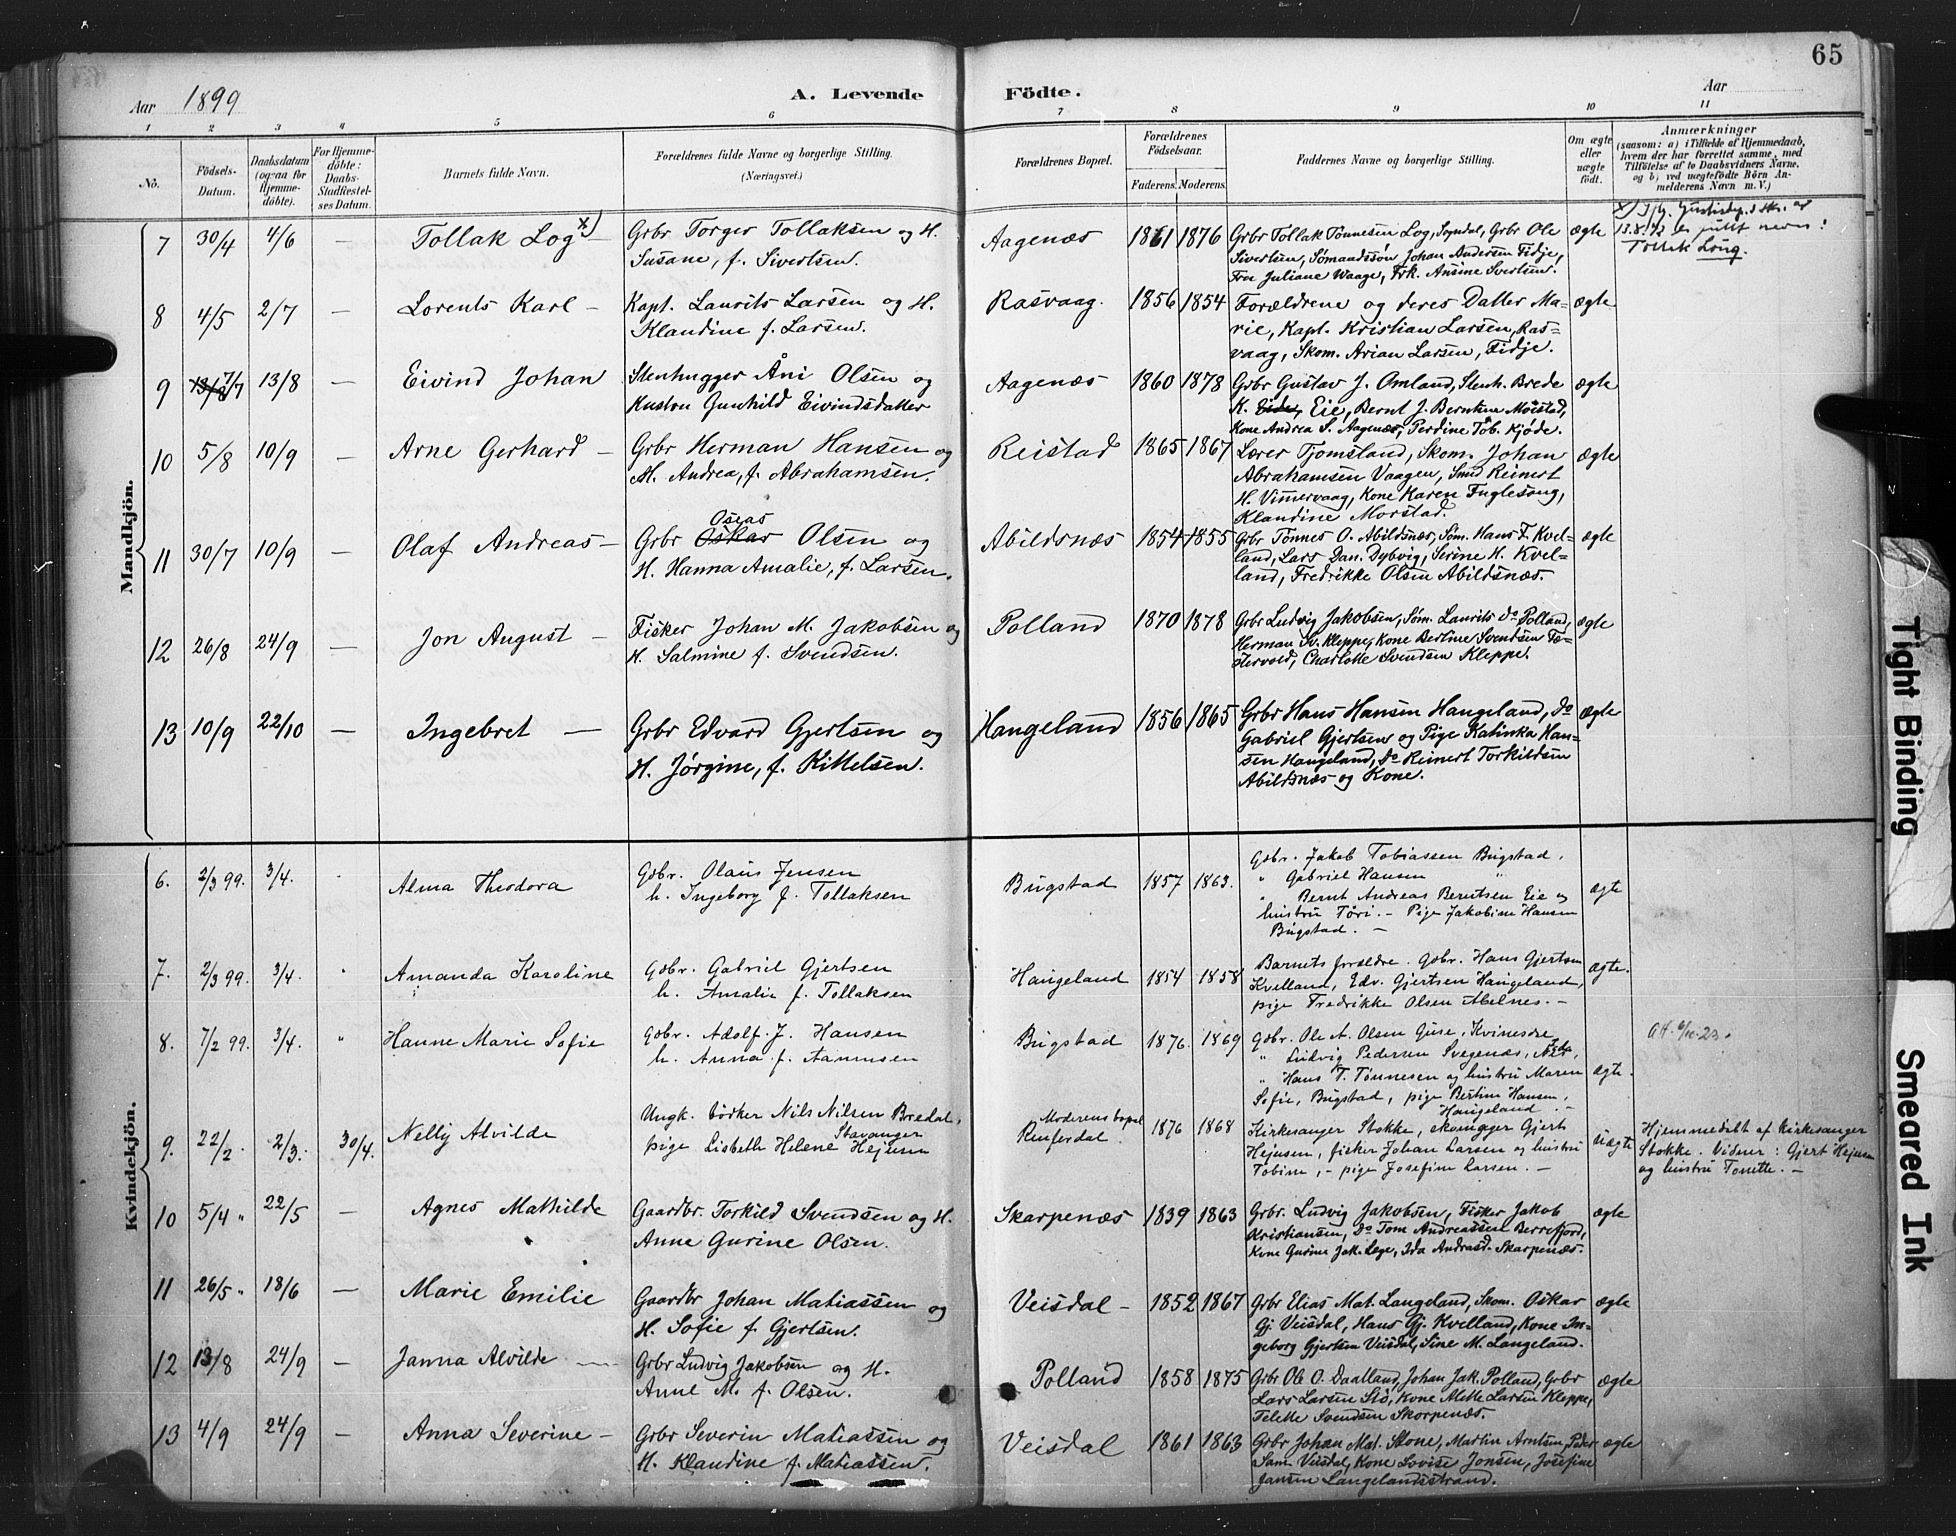 65
Aar 1899
A. Levende Födte.
Aar
1 2 3 4 5 6 7 8 9 10 11
No.
Födsels-Datum.
Daabsdatum (ogsaa for Hjemmedöbte).
For Hjemmedöbte: Daabs-Stadfæstelses Datum.
Barnets fulde Navn.
Forældrenes fulde Navne og borgerlige Stilling. (Næringsvei.)
Forældrenes Bopæl.
Forældrenes Födselsaar.
Faderens. Moderens.
Faddernes Navne og borgerlige Stilling.
Om ægte eller uægte födt.
Anmærkninger
(saasom: a) i Tilfælde af Hjemmedaab, hvem der har forrettet samme, med Tilföielse af to Daabsvidners Navne, og b) ved uægtefödte Börn Anmelderens Navn m. V.)
Mandkjön.
7 30/4 4/6 — Tollak Log x) —
Grbr Torger Tollaksen og H.
Susane, f. Sivertsen.
Aagenæs 1861 1876
Grbr Tollak Tönnesen Log, Sogndal, Grbr Ole
Sivertsen, Sömandssön Johan Andersen Fidje,
Fru Juliane Waage, Frk. Ansine Sverlsen.
ægte
13.8.43 er fullt navn:
Tollak Loug.
8 4/5 2/7 — Lorents Karl —
Kapt. Laurits Larsen og H.
Klandine f. Larsen.
Rasvaag. 1856 1854
Forældrene og deres Datter Ma-
rie, Kapt. Kristian Larsen, Ras-
vaag, Skom. Arian Larsen, Fidje.
ægte
9 7/7 13/8 — Eivind Johan
Stenhugger Åni Olsen og
Kustru Gunhild Eivindsdatter
Aagenæs 1860 1878
Grbr Gustav J. Omland, Stenh. Brede
K. Eide, Eie, Bernt J. Berntine Möistad,
Kone Andrea S. Aagenæs, Perdine Tob. Kjöde.
ægte
10 5/8 10/9 — Arne Gerhard —
Grbr Herman Hansen og
H. Andrea, f. Abrahamsen.
Reistad 1865 1867
Lærer Tjomsland, Skom. Johan
Abrahamsen Vaagen, Smed Reinert
H. Vinnervaag, Kone Karen Fuglesang,
Klandine Morstad.
ægte
11 30/7 10/9 — Olaf Andreas —
Oseas
Grbr Oskar Olsen og
H. Hanna Amalie, f. Larsen.
Abildsnæs 1854 1855
Grbr Tönnes O. Abildsnæs, Söm. Hans F. Kvel-
land, Lars Dan. Dybvig, Serine H. Kvel-
land, Fredrikke Olsen Abildsnæs.
ægte
12 26/8 24/9 — Jon August —
Fisker Johan M. Jakobsen og
H. Salmine f. Svendsen.
Polland 1870 1878
Grbr Ludvig Jakobsen, Söm. Laurits do Polland,
Herman Sv. Kleppe, Kone Bertine Svendsen Fæ-
stervold, Charlotte Svendsen Kleppe.
ægte
13 10/9 22/10 — Ingebret —
Grbr Edvard Gjertsen og
H. Jörgine, f. Kittelsen.
Haugeland 1856 1865
Grbr Hans Hansen Haugeland, do
Gabriel Gjertsen og Pige Katinka Han-
sen Haugeland, do Reinert Torkildsen
Abildsnæs og Kone.
ægte
Kvindekjön.
6. 2/3 99. 3/4. Alma Theodora
Gdbr. Olaus Jensen
h. Ingeborg f. Tollaksen
Bugstad 1857 1863.
Gdbr. Jakob Tobiassen Bugstad.
" Gabriel Hansen "
" Bernt Andreas Berntsen Eie og
hustru Töri. — Pige Jakobine Hansen
Bugstad. —
ægte
7. 2/3 99. 3/4. Amanda Karoline
Gdbr. Gabriel Gjertsen
h. Amalie f. Tollaksen
Haugeland 1854 1858
Barnets forældre. Gdbr. Hans Gjertsen
Kvelland, Edv. Gjertsen Haugeland,
pige Fredrikke Olsen Abelnes. —
ægte.
8. 7/2 99. 3/4. " Hanne Marie Sofie
Gdbr. Adolf J. Hansen
h. Anna f. Aanensen
Bugstad 1876. 1869
Gdbr. Ole A. Olsen Guse, Kvinesdre
" Ludvig Pedersen Svegenæs,
" Hans T. Tönnesen og hustru Maren
Sofie, Bugstad, pige Bertine Hansen,
Haugeland. —
ægte.
9. 22/2. 2/3. 30/4. Nelly Alvilde
Ungk. bödker Nils Nilsen Bredal,
Stavanger
pige Lisbeth Helene Hejesen
Moderens bopæl
Renferdal 1876 1868
Kirkesanger Stokke, skomager Gjert
Hejesen, fisker Johan Larsen og hustru
Tobine, — pige Josefine Larsen. —
uægte
Hjemmedöbt af kirkesanger
Stokke. Vidner: Gjert Hejesen
og hustru Tonette. —
10 5/4 " 22/5 — Agnes Mathilde
Gaardbr. Torkild Svendsen og H.
Anne Gurine Olsen.
Skarpenæs 1839 1863
Grbr. Ludvig Jakobsen, Fisker Jakob
Kristiansen, do Tom Andreassen Berrefjord,
Kone Gurine Jak. Lege, Ida Andrasd. Skarpenæs.
ægte
11 26/5 " 18/6 — Marie Emilie
Gaardbr Johan Matiassen og
H. Sofie f. Gjertsen.
Veisdal — 1852 1867
Grbr Elias Mat. Langeland, Skom. Oskar
Gj. Veisdal, Hans Gj. Kvelland, Kone In-
geborg Gjertsen Veisdal, Sine M. Langeland.
ægte
12 13/8 24/9 — Janna Alvilde —
Grbr Ludvig Jakobsen og H.
Anne M. f. Olsen.
Polland 1858 1875
Grbr Ole O. Daalland, Johan Jak. Polland, Grbr
Lars Larsen Stö, Kone Mette Larsen Kleppe,
Telette Svendsen Skorpenæs.
ægte
13 4/9 24/9 — Anna Severine —
Grbr Severin Matiassen og
H. Klandine f. Matiassen.
Veisdal 1861 1863
Grbr Johan Mat. Stone, Martin Arntsen, Peder
Sam. Veisdal, Kone Lovise Jonsen, Josefine
Jansen Langelandsstrand.
ægte
Tight Binding
Smeared Ink